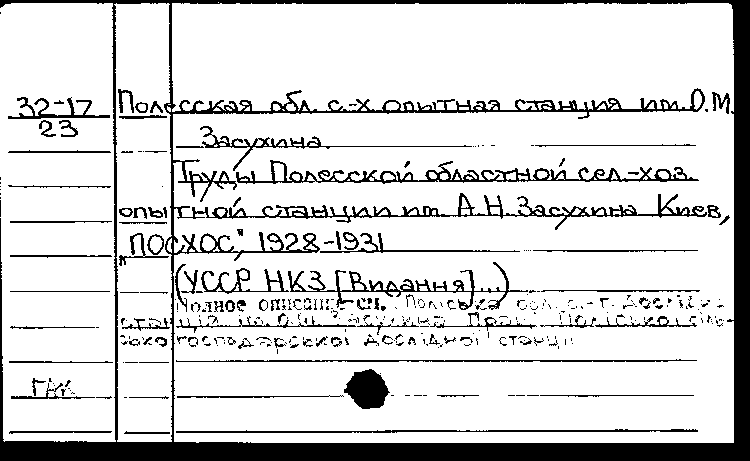 32-17
23
Полесская обл. с.-х. опытная станция им. О.М.
Засухина.
Труды Полесской областной сел.-хоз.
опытной станции им. А.Н. Засухина Киев,
"ПОСХОС", 1928-1931
(УССР. НКЗ [Видання]...)
Полное описание см. Поліська обл. с.-г. дослідна
станція ім. Засухина Праці Поліської сіль-
ського господарської дослідної станції
ГАК